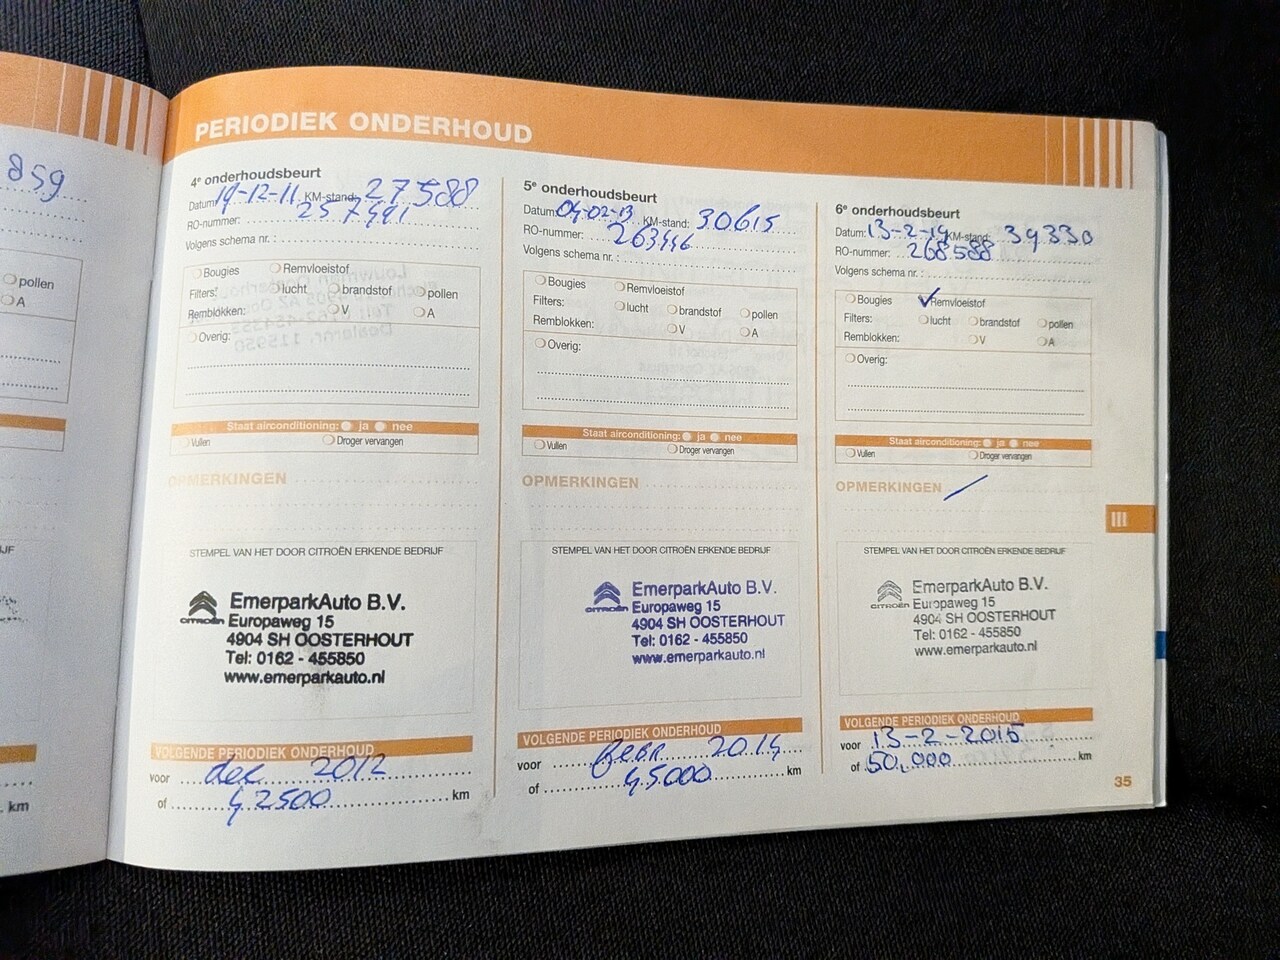 859
pollen
A
km
PERIODIEK ONDERHOUD
4e onderhoudsbeurt
Datum: 19-12-11 KM-stand: 27588
RO-nummer: 257491
Volgens schema nr. :
Bougies Remvloeistof
Filters: lucht brandstof pollen
Remblokken: V A
Overig:
Staat airconditioning: ja nee
Vullen Droger vervangen
OPMERKINGEN
STEMPEL VAN HET DOOR CITROËN ERKENDE BEDRIJF
CITROËN
EmerparkAuto B.V.
Europaweg 15
4904 SH OOSTERHOUT
Tel: 0162 - 455850
www.emerparkauto.nl
VOLGENDE PERIODIEK ONDERHOUD
voor dec 2012
of 42500 km
5e onderhoudsbeurt
Datum: 04-02-13 KM-stand: 30615
RO-nummer: 263446
Volgens schema nr. :
Bougies Remvloeistof
Filters: lucht brandstof pollen
Remblokken: V A
Overig:
Staat airconditioning: ja nee
Vullen Droger vervangen
OPMERKINGEN
STEMPEL VAN HET DOOR CITROËN ERKENDE BEDRIJF
CITROËN
EmerparkAuto B.V.
Europaweg 15
4904 SH OOSTERHOUT
Tel: 0162 - 455850
www.emerparkauto.nl
VOLGENDE PERIODIEK ONDERHOUD
voor febr 2014
of 45000 km
6e onderhoudsbeurt
Datum: 13-2-14 KM-stand: 39330
RO-nummer: 268588
Volgens schema nr. :
Bougies Remvloeistof
Filters: lucht brandstof pollen
Remblokken: V A
Overig:
Staat airconditioning: ja nee
Vullen Droger vervangen
OPMERKINGEN
STEMPEL VAN HET DOOR CITROËN ERKENDE BEDRIJF
CITROËN
EmerparkAuto B.V.
Europaweg 15
4904 SH OOSTERHOUT
Tel: 0162 - 455850
www.emerparkauto.nl
VOLGENDE PERIODIEK ONDERHOUD
voor 13-2-2015
of 50.000 km
III
35